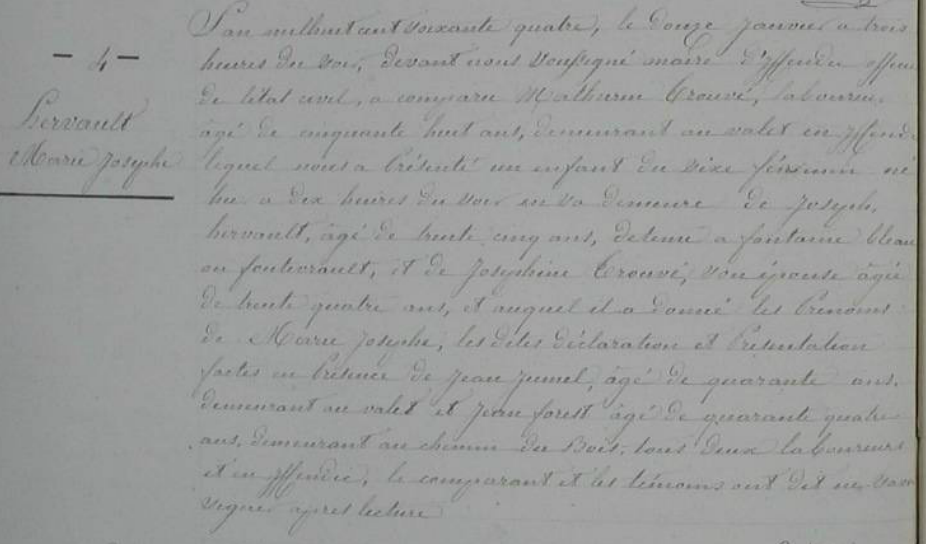 — 4 —
hervault
Marie Josephe
L'an milhuit cent soixante quatre, le douze Janvier a trois
heures du soir, devant nous soussigné maire d'Iffendic officier
de l'état civil, a comparu Mathurin Crouvé, laboureur,
âgé de cinquante huit ans, demeurant au valet en Iffendic
lequel nous a présenté un enfant du sixe féminin né
hier a dix heures du soir en sa demeure de Joseph,
hervault, âgé de trente cinq ans, detenu a fontaine bleau
ou fontevrault, et de Josephine Crouvé, son épouse âgée
de trente quatre ans, et auquel il a donné les Prenoms
de Marie Josephe, les dites déclaration et Présentation
faites en Présence de Jean Jumel, âgé de quarante ans,
demeurant au valet et Jean forest âgé de quarante quatre
ans, demeurant au chemin du Bois, tous deux laboureurs
et en Iffendic, le comparant et les témoins ont dit ne savoir
signer après lecture